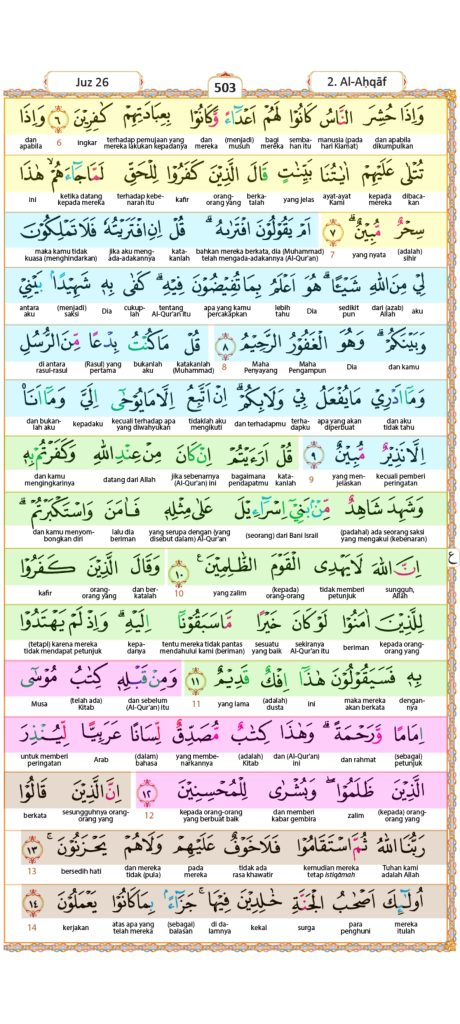 Juz 26
503
2. Al-Aḥqāf
وَاِذَا حُشِرَ النَّاسُ كَانُوْا لَهُمْ اَعْدَاۤءً وَّكَانُوْا بِعِبَادَتِهِمْ كٰفِرِيْنَ ٦ وَاِذَا
dan apabila dikumpulkan manusia (pada hari Kiamat) sembahan itu bagi mereka (menjadi) musuh dan mereka terhadap pemujaan yang mereka lakukan kepadanya ingkar 6 dan apabila
تُتْلٰى عَلَيْهِمْ اٰيٰتُنَا بَيِّنٰتٍ قَالَ الَّذِيْنَ كَفَرُوْا لِلْحَقِّ لَمَّا جَاۤءَهُمْ هٰذَا
dibacakan kepada mereka ayat-ayat Kami yang jelas berkatalah orang-orang yang kafir terhadap kebenaran itu ketika datang kepada mereka ini
سِحْرٌ مُّبِيْنٌ ٧ اَمْ يَقُوْلُوْنَ افْتَرٰىهُ قُلْ اِنِ افْتَرَيْتُهٗ فَلَا تَمْلِكُوْنَ
(adalah) sihir yang nyata 7 bahkan mereka berkata, dia (Muhammad) telah mengada-adakannya (Al-Qur'an) katakanlah jika aku mengada-adakannya maka kamu tidak kuasa (menghindarkan)
لِيْ مِنَ اللّٰهِ شَيْـًٔا هُوَ اَعْلَمُ بِمَا تُفِيْضُوْنَ فِيْهِ كَفٰى بِهٖ شَهِيْدًا بَيْنِيْ
aku dari (azab) Allah sedikit pun Dia lebih tahu apa yang kamu percakapkan tentang Al-Qur'an itu cukuplah Dia (menjadi) saksi antara aku
وَبَيْنَكُمْ وَهُوَ الْغَفُوْرُ الرَّحِيْمُ ٨ قُلْ مَا كُنْتُ بِدْعًا مِّنَ الرُّسُلِ
dan kamu dan Dia Maha Pengampun Maha Penyayang 8 katakanlah (Muhammad) bukanlah aku (Rasul) yang pertama di antara rasul-rasul
وَمَآ اَدْرِيْ مَا يُفْعَلُ بِيْ وَلَا بِكُمْ اِنْ اَتَّبِعُ اِلَّا مَا يُوْحٰٓى اِلَيَّ وَمَآ اَنَا۠
dan aku tidak tahu apa yang akan diperbuat terhadapku dan terhadapmu tidaklah aku mengikuti kecuali terhadap apa yang diwahyukan kepadaku dan bukanlah aku
اِلَّا نَذِيْرٌ مُّبِيْنٌ ٩ قُلْ اَرَءَيْتُمْ اِنْ كَانَ مِنْ عِنْدِ اللّٰهِ وَكَفَرْتُمْ بِهٖ
kecuali pemberi peringatan yang menjelaskan 9 katakanlah bagaimana pendapatmu jika sebenarnya (Al-Qur'an) ini datang dari Allah dan kamu mengingkarinya
وَشَهِدَ شَاهِدٌ مِّنْۢ بَنِيْٓ اِسْرَاۤءِيْلَ عَلٰى مِثْلِهٖ فَاٰمَنَ وَاسْتَكْبَرْتُمْ
(padahal) ada seorang saksi yang mengakui (kebenaran) (seorang) dari Bani Israil yang serupa dengan (yang disebut dalam) Al-Qur'an lalu dia beriman dan kamu menyombongkan diri
اِنَّ اللّٰهَ لَا يَهْدِى الْقَوْمَ الظّٰلِمِيْنَ ١٠ وَقَالَ الَّذِيْنَ كَفَرُوْا
sungguh, Allah tidak memberi petunjuk (kepada) orang-orang yang zalim 10 dan berkatalah orang-orang yang kafir
لِلَّذِيْنَ اٰمَنُوْا لَوْ كَانَ خَيْرًا مَّا سَبَقُوْنَآ اِلَيْهِ وَاِذْ لَمْ يَهْتَدُوْا
kepada orang-orang yang beriman sekiranya Al-Qur'an itu sesuatu yang baik tentu mereka tidak pantas mendahului kami (beriman) kepadanya (tetapi) karena mereka tidak mendapat petunjuk
بِهٖ فَسَيَقُوْلُوْنَ هٰذَآ اِفْكٌ قَدِيْمٌ ١١ وَمِنْ قَبْلِهٖ كِتٰبُ مُوْسٰٓى
dengannya maka mereka akan berkata ini (adalah) dusta yang lama 11 dan sebelum (Al-Qur'an) itu (telah ada) Kitab Musa
اِمَامًا وَّرَحْمَةً وَهٰذَا كِتٰبٌ مُّصَدِّقٌ لِّسَانًا عَرَبِيًّا لِّيُنْذِرَ
(sebagai) petunjuk dan rahmat dan (Al-Qur'an) ini (adalah) Kitab yang membenarkannya (dalam) bahasa Arab untuk memberi peringatan
الَّذِيْنَ ظَلَمُوْا وَبُشْرٰى لِلْمُحْسِنِيْنَ ١٢ اِنَّ الَّذِيْنَ قَالُوْا
(kepada) orang-orang yang zalim dan memberi kabar gembira kepada orang-orang yang berbuat baik 12 sesungguhnya orang-orang yang berkata
رَبُّنَا اللّٰهُ ثُمَّ اسْتَقَامُوْا فَلَا خَوْفٌ عَلَيْهِمْ وَلَا هُمْ يَحْزَنُوْنَ ١٣
Tuhan kami adalah Allah kemudian mereka tetap istiqāmah tidak ada rasa khawatir pada mereka dan mereka tidak (pula) bersedih hati 13
اُولٰۤىِٕكَ اَصْحٰبُ الْجَنَّةِ خٰلِدِيْنَ فِيْهَا جَزَاۤءًۢ بِمَا كَانُوْا يَعْمَلُوْنَ ١٤
mereka itulah para penghuni surga kekal di dalamnya (sebagai) balasan atas apa yang telah mereka kerjakan 14
ع